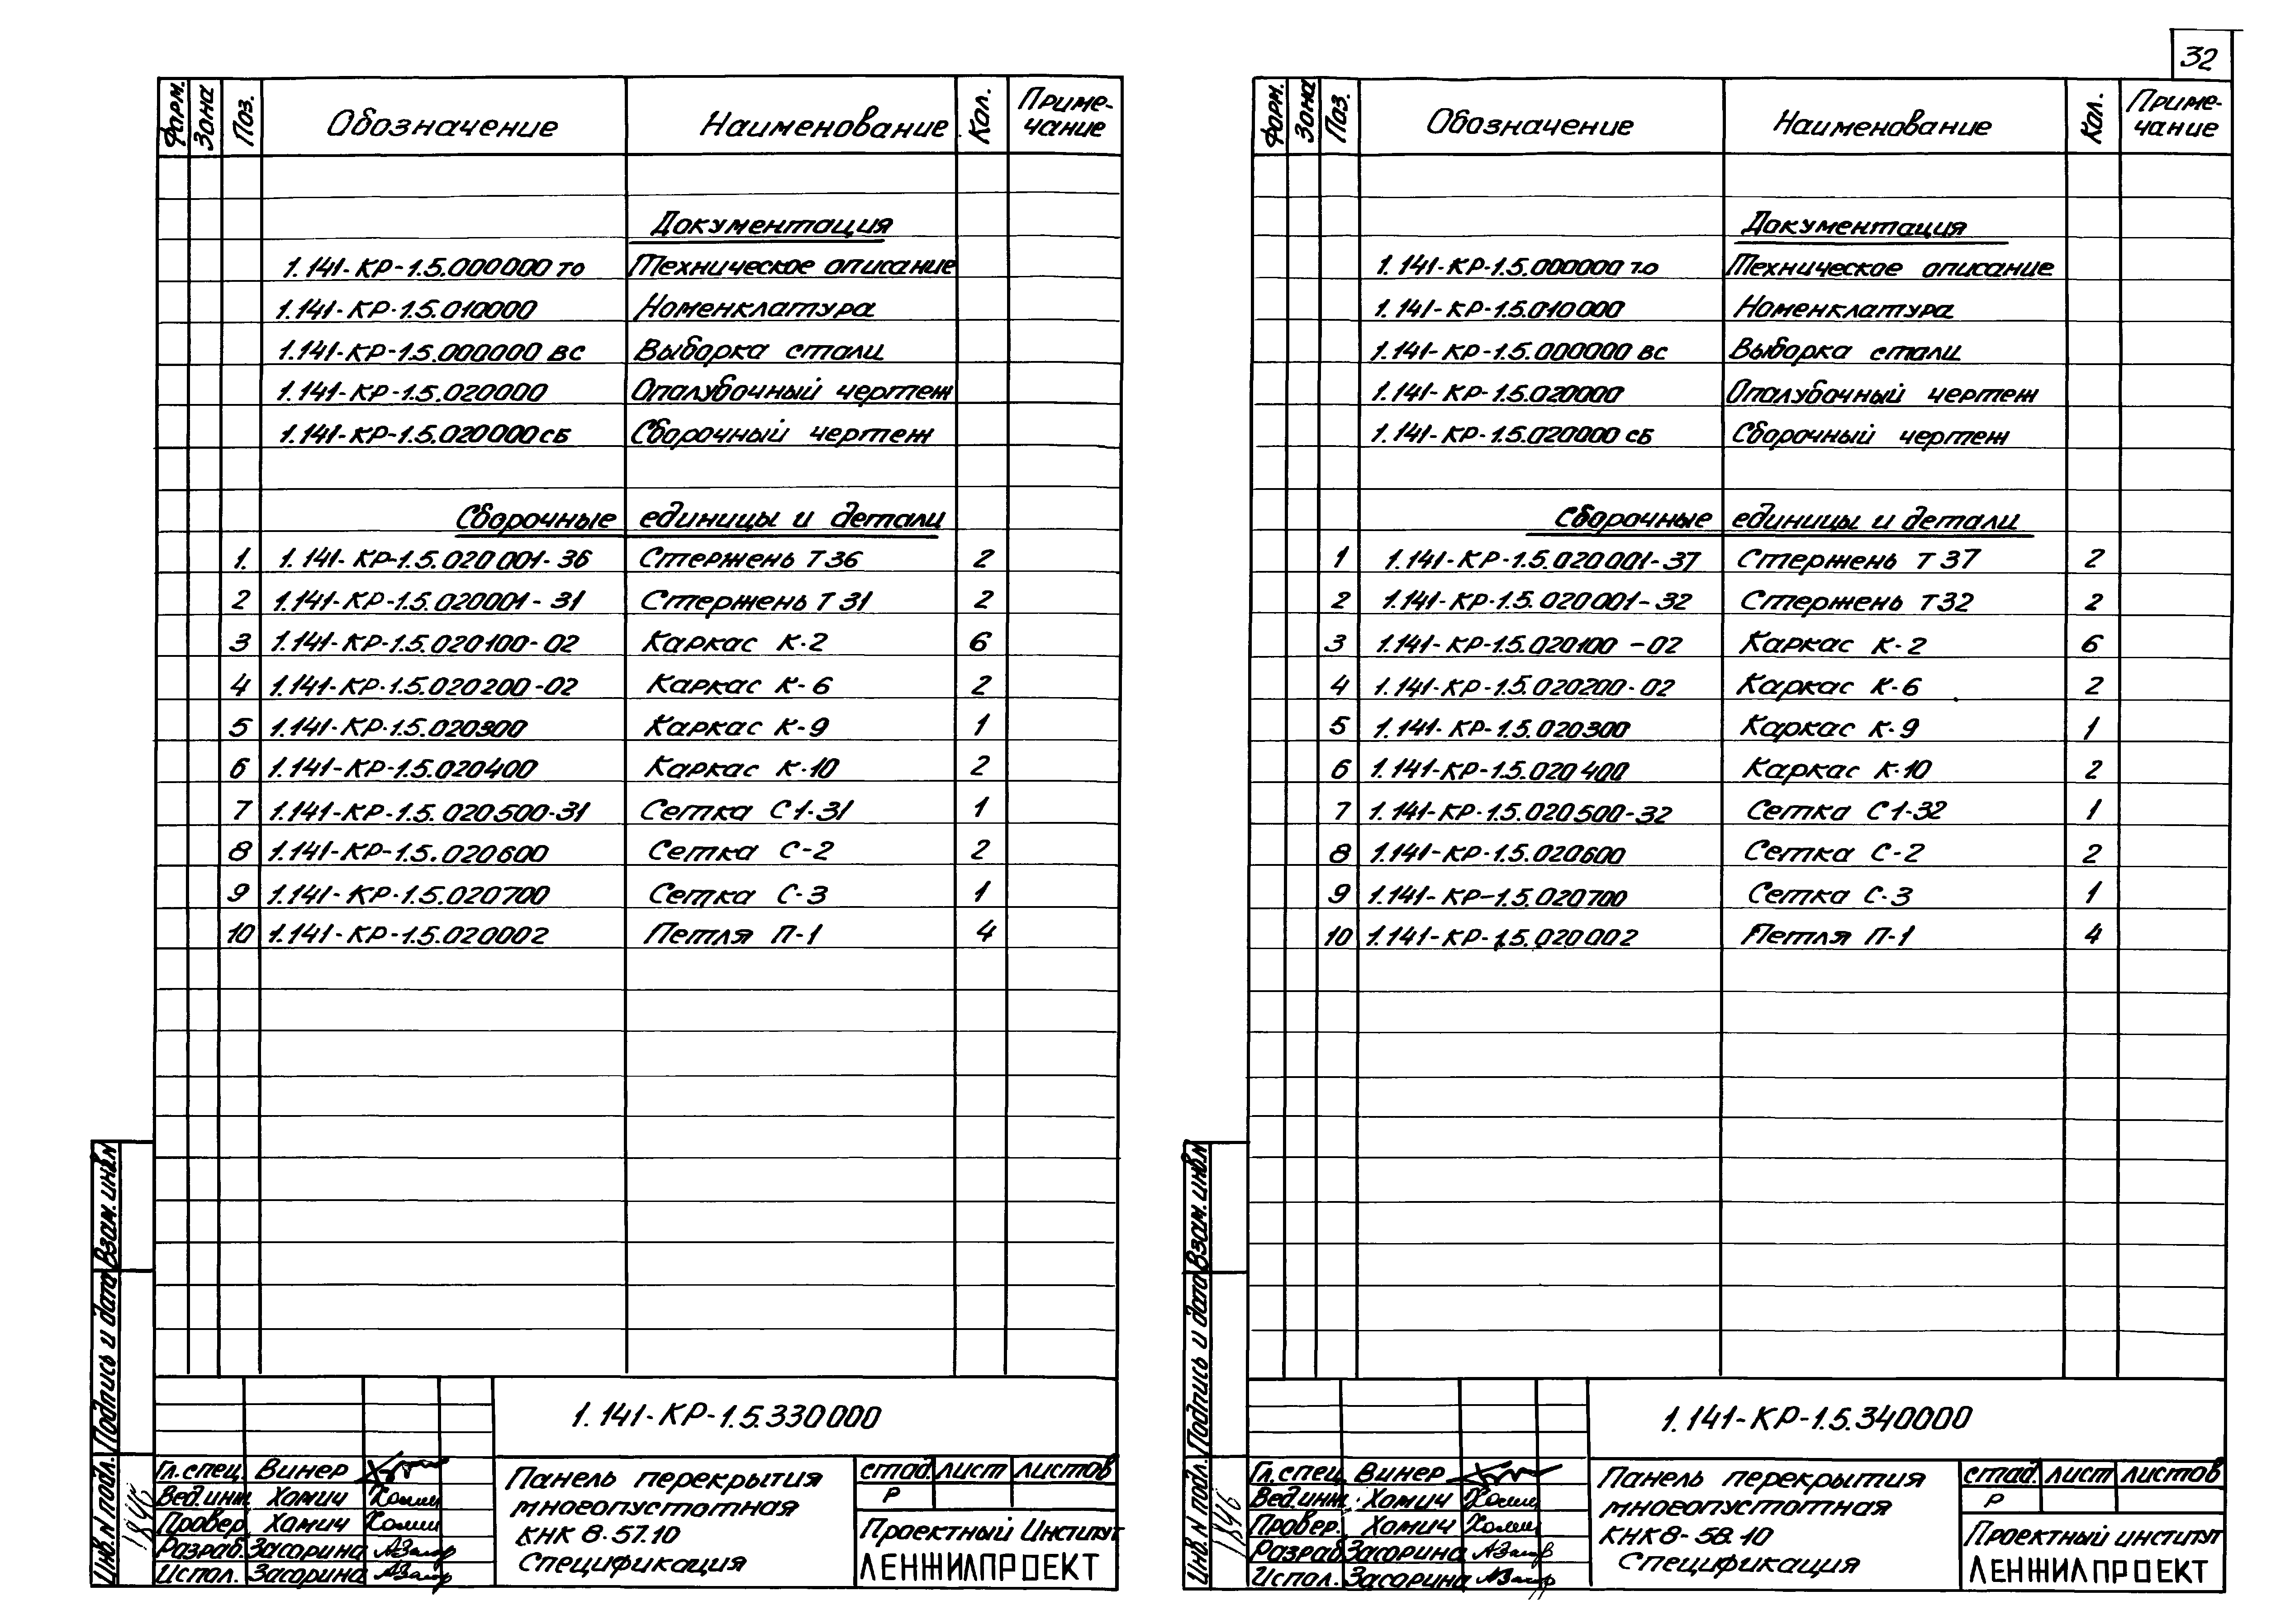 32
Форм. Зона Поз. Обозначение Наименование Кол. Приме-
чание
Документация
1.141-КР-1.5.000000 ТО Техническое описание
1.141-КР-1.5.010000 Номенклатура
1.141-КР-1.5.000000 ВС Выборка стали
1.141-КР-1.5.020000 Опалубочный чертеж
1.141-КР-1.5.020000 СБ Сборочный чертеж
Сборочные единицы и детали
1. 1.141-КР-1.5.020001-36 Стержень Т36 2
2 1.141-КР-1.5.020001-31 Стержень Т31 2
3 1.141-КР-1.5.020100-02 Каркас К-2 6
4 1.141-КР-1.5.020200-02 Каркас К-6 2
5 1.141-КР-1.5.020300 Каркас К-9 1
6 1.141-КР-1.5.020400 Каркас К-10 2
7 1.141-КР-1.5.020500-31 Сетка С1-31 1
8 1.141-КР-1.5.020600 Сетка С-2 2
9 1.141-КР-1.5.020700 Сетка С-3 1
10 1.141-КР-1.5.020002 Петля П-1 4
Взам. инв.N
Подпись и дата
Инв.N подл.
1846
1.141-КР-1.5.330000
Гл.спец. Винер
Вед.инж. Хомич
Провер. Хомич
Разраб. Засорина
Испол. Засорина
Панель перекрытия
многопустотная
КНК 8-57.10
Спецификация
стад лист листов
Р
Проектный Институт
ЛЕНЖИЛПРОЕКТ
Форм. Зона Поз. Обозначение Наименование Кол. Приме-
чание
Документация
1.141-КР-1.5.000000 ТО Техническое описание
1.141-КР-1.5.010000 Номенклатура
1.141-КР-1.5.000000 ВС Выборка стали
1.141-КР-1.5.020000 Опалубочный чертеж
1.141-КР-1.5.020000 СБ Сборочный чертеж
Сборочные единицы и детали
1 1.141-КР-1.5.020001-37 Стержень Т37 2
2 1.141-КР-1.5.020001-32 Стержень Т32 2
3 1.141-КР-1.5.020100-02 Каркас К-2 6
4 1.141-КР-1.5.020200-02 Каркас К-6 2
5 1.141-КР-1.5.020300 Каркас К-9 1
6 1.141-КР-1.5.020400 Каркас К-10 2
7 1.141-КР-1.5.020500-32 Сетка С1-32 1
8 1.141-КР-1.5.020600 Сетка С-2 2
9 1.141-КР-1.5.020700 Сетка С-3 1
10 1.141-КР-1.5.020002 Петля П-1 4
Взам. инв.N
Подпись и дата
Инв.N подл.
1846
1.141-КР-1.5.340000
Гл.спец. Винер
Вед.инж. Хомич
Провер. Хомич
Разраб. Засорина
Испол. Засорина
Панель перекрытия
многопустотная
КНК8-58.10
Спецификация
стад лист листов
Р
Проектный институт
ЛЕНЖИЛПРОЕКТ